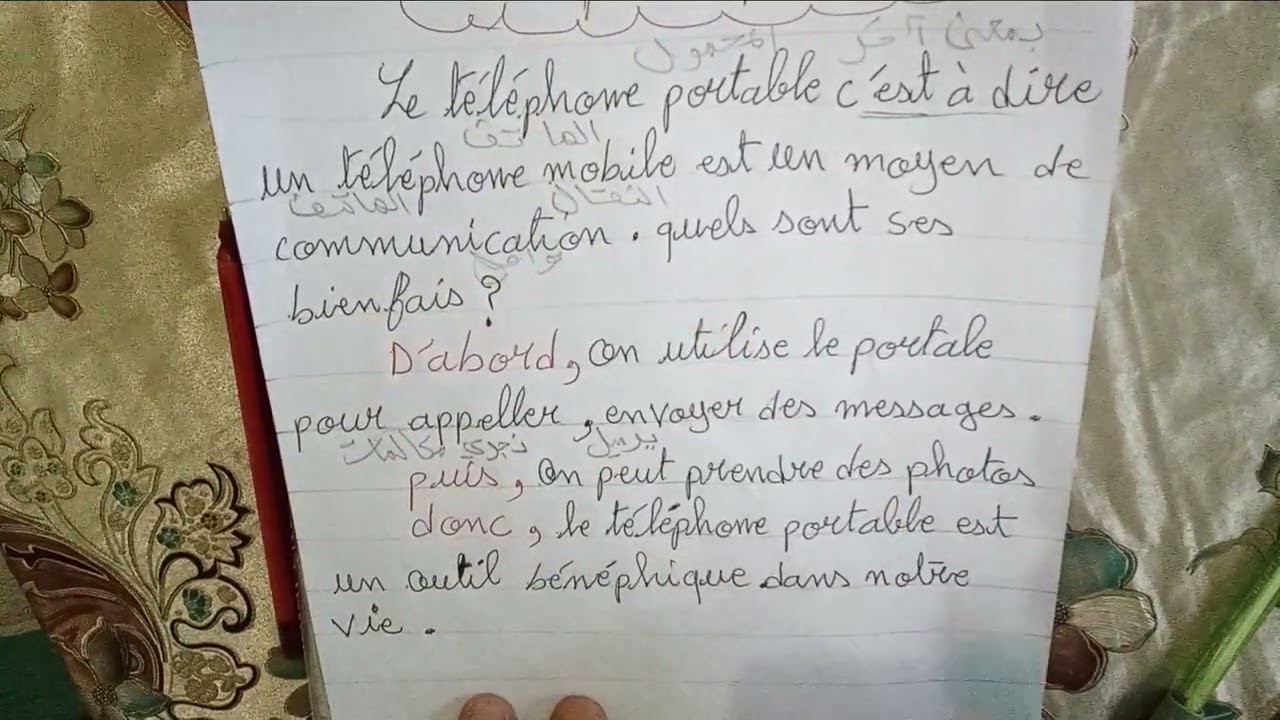 بمعنى آخر المحمول
Le téléphone portable c'est à dire
الهاتف
un téléphone mobile est un moyen de
الهاتف النقال
communication. quels sont ses
تواصل
bienfais ?
D'abord, on utilise le portale
pour appeller, envoyer des messages.
نجري مكالمات يرسل
puis, on peut prendre des photos
donc, le téléphone portable est
un outil bénéphique dans notre
vie.